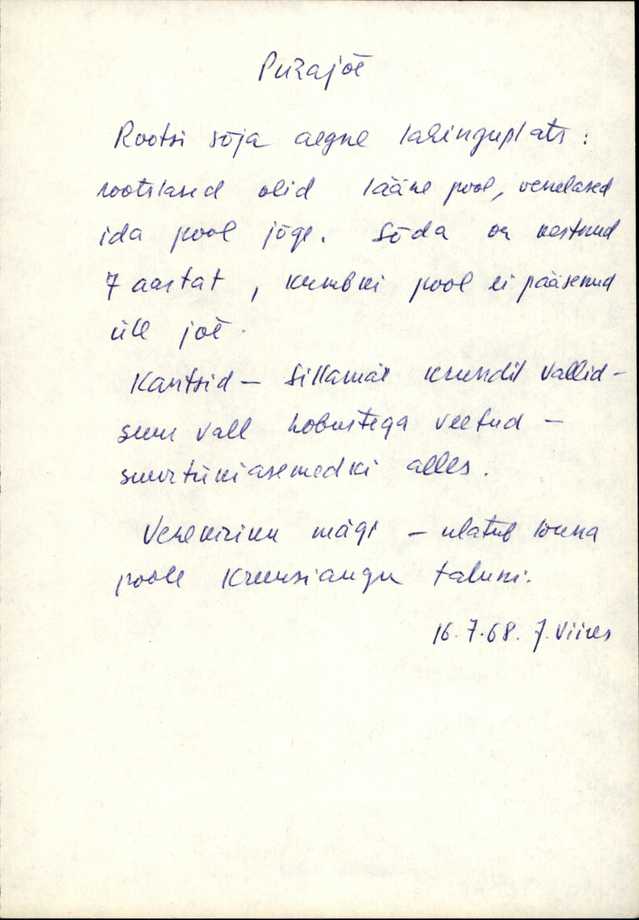 Purajõe
Rootsi sõja aegne lahinguplats:
rootslased olid lääne pool, venelased
ida pool jõge. Sõda on kestnud
7 aastat, kumbki pool ei pääsenud
üle jõe.
Kantsid – Sillamäe krundil vallid –
suur vall hobustega veetud –
suurtükiasemedki alles.
Venekiriku mägi – ulatub lõuna
poole Kreusiaugu taluni.
16.7.68. J. Viires